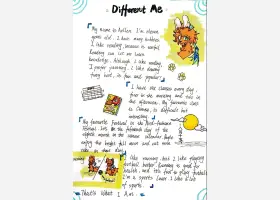 Different Me
My name is Aileen. I'm eleven
years old. I have many hobbies.
I like reading, because is useful.
Reading can let me learn
knowledge. Although I like reading,
I prefer painting. I like drawing
funny bird, is fun and popular.
I have six classes every day,
four in the morning and two in
the afternoon. My favourite class
is Chinese, is difficult but
interesting.
My favourite Festival is the Mid-Autumn
Festival. It's on the fifteenth day of the
eighth month in the calendar. People
enjoy the bright full moon and eat moon
cake on that day.
I like running, but I like playing
football better. Running is good for
health, and it's fun to play football.
I'm a sports lover. I like a lot
of sports.
That's What I Am.